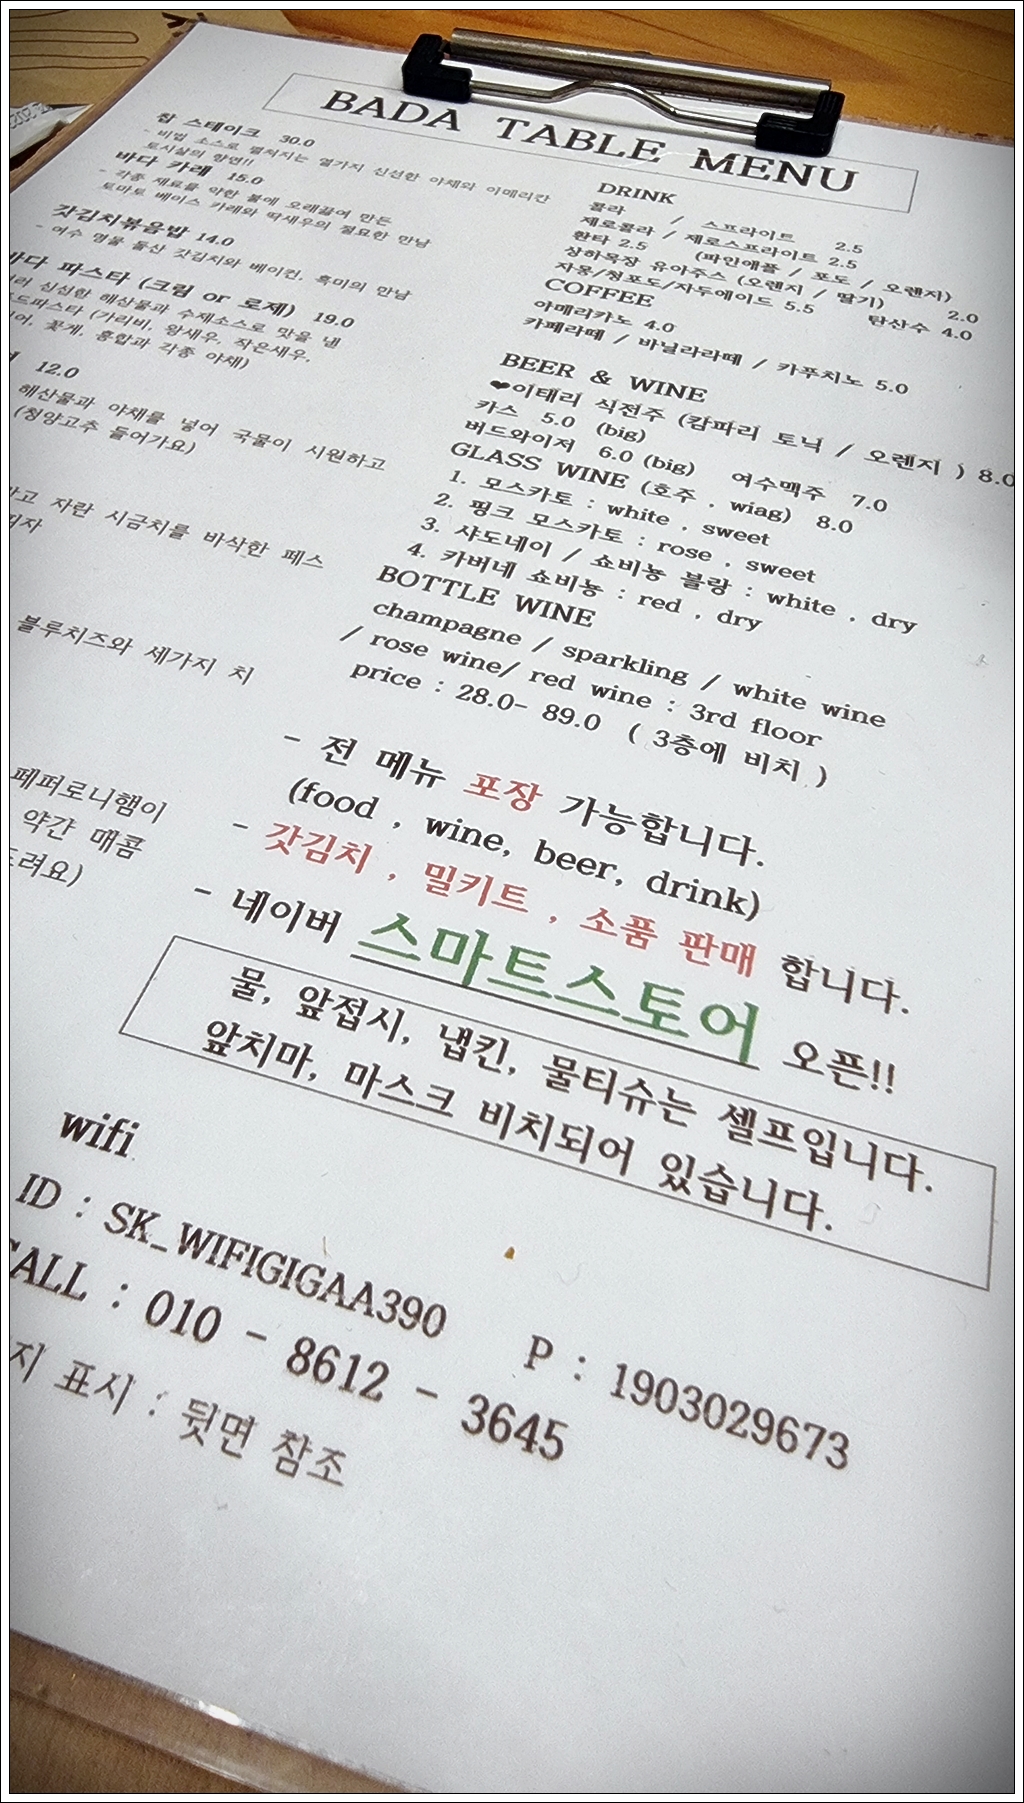 BADA TABLE MENU
찹 스테이크 30.0
- 비법 소스로 펼쳐지는 열가지 신선한 야채와 아메리칸
토시살의 향연!!
바다 카레 15.0
- 각종 재료를 약한 불에 오래끓여 만든
토마토 베이스 카레와 딱새우의 절묘한 만남
갓김치볶음밥 14.0
- 여수 명물 돌산 갓김치와 베이컨, 흑미의 만남
바다 파스타 (크림 or 로제) 19.0
신선한 해산물과 수제소스로 맛을 낸
(가리비, 왕새우, 작은새우,
꽃게, 홍합과 각종 야채)
12.0
해산물과 야채를 넣어 국물이 시원하고
(청양고추 들어가요)
자란 시금치를 바삭한 페스
블루치즈와 세가지 치
페퍼로니햄이
약간 매콤
려요)
DRINK
콜라 / 스프라이트 2.5
제로콜라 / 제로스프라이트 2.5
환타 2.5 (파인애플 / 포도 / 오렌지)
상하목장 유아주스 (오렌지 / 딸기) 2.0
자몽/청포도/자두에이드 5.5 탄산수 4.0
COFFEE
아메리카노 4.0
카페라떼 / 바닐라라떼 / 카푸치노 5.0
BEER & WINE
❤이태리 식전주 (캄파리 토닉 / 오렌지 ) 8.0
카스 5.0 (big)
버드와이저 6.0 (big) 여수맥주 7.0
GLASS WINE (호주 . wiag) 8.0
1. 모스카토 : white . sweet
2. 핑크 모스카토 : rose . sweet
3. 샤도네이 / 쇼비뇽 블랑 : white . dry
4. 카버네 쇼비뇽 : red . dry
BOTTLE WINE
champagne / sparkling / white wine
/ rose wine/ red wine : 3rd floor
price : 28.0- 89.0 ( 3층에 비치 )
- 전 메뉴 포장 가능합니다.
(food , wine, beer, drink)
- 갓김치 , 밀키트 , 소품 판매 합니다.
- 네이버 스마트스토어 오픈!!
물, 앞접시, 냅킨, 물티슈는 셀프입니다.
앞치마, 마스크 비치되어 있습니다.
wifi
ID : SK_WIFIGIGAA390 P : 1903029673
CALL : 010 - 8612 - 3645
지 표시 : 뒷면 참조